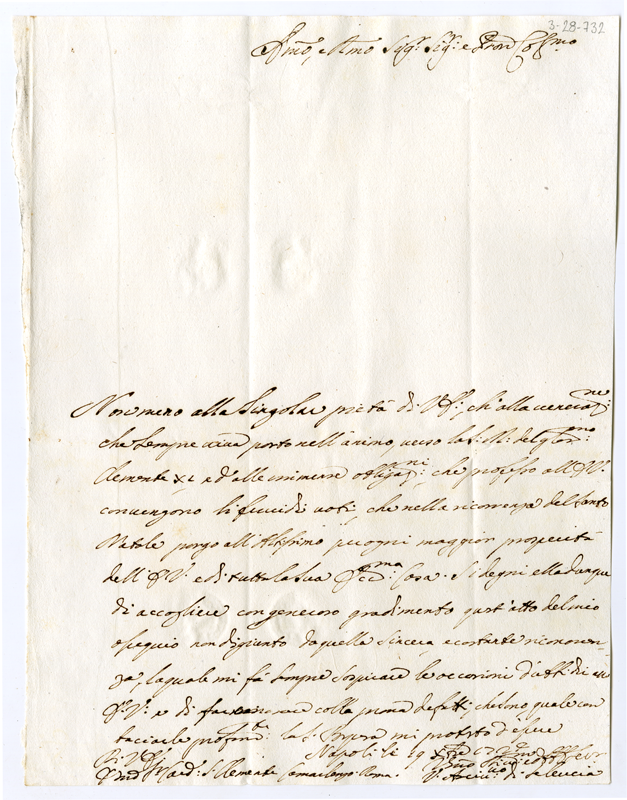 3-28-732
Emo, e Rmo Sig.r Sig.r e Pron Colmo
Non meno alla singolar pietà di V.E., ch'alla veneraz.ne
che sempre viva porto nell'animo, verso la S.M. del gran
Clemente XI e dalle immense obligaz.ni, che professo all'E.V.
convengono li fervidi voti, che nella ricorrenza del Santo
Natale porgo all'Altissimo per ogni maggior prosperità
dell'E.V. e di tutta la sua Ecc.ma Casa. Si degni ella dunque
di accogliere con generoso gradimento quest'atto del mio
ossequio non disgiunto da quella sincera e costante riconoscen-
za, la quale mi fà sempre sospirare le occasioni d'
E.V. e di colla prova de fatti, che sono quale con
baciarle profond.te la S. Porpora mi protesto d'essere
Di V.E. Napoli li 19
Card. S. Clemente Camarlengo Roma di Seleucia